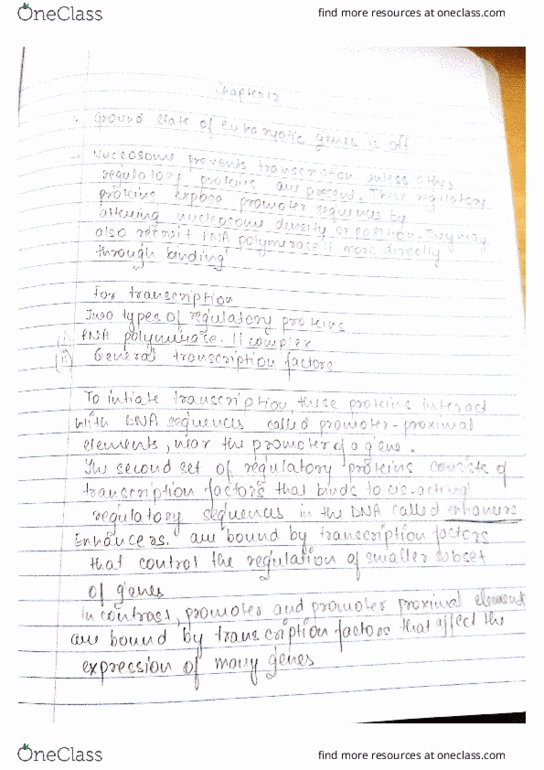 OneClass
find more resources at oneclass.com
Chapter 12
Ground state of eukaryotic genes is off
Nucleosome prevents transcription unless other
regulatory proteins are present. These regulatory
proteins expose promoter sequences by
altering nucleosome density or position. They may
also recruit RNA polymerase II more directly
through binding
For transcription
Two types of regulatory proteins
(i) RNA polymerase II complex
(ii) General transcription factors
To intiate transcription, these proteins interact
with DNA sequences called promoter-proximal
elements, near the promoter of a gene.
The second set of regulatory proteins consists of
transcription factors that binds to cis-acting
regulatory sequences in the DNA called enhancers
Enhancers. are bound by transcription factors
that control the regulation of smaller subset
of genes
In contrast, promoter and promoter proximal elements
are bound by transcription factors that affect the
expression of many genes
OneClass
find more resources at oneclass.com